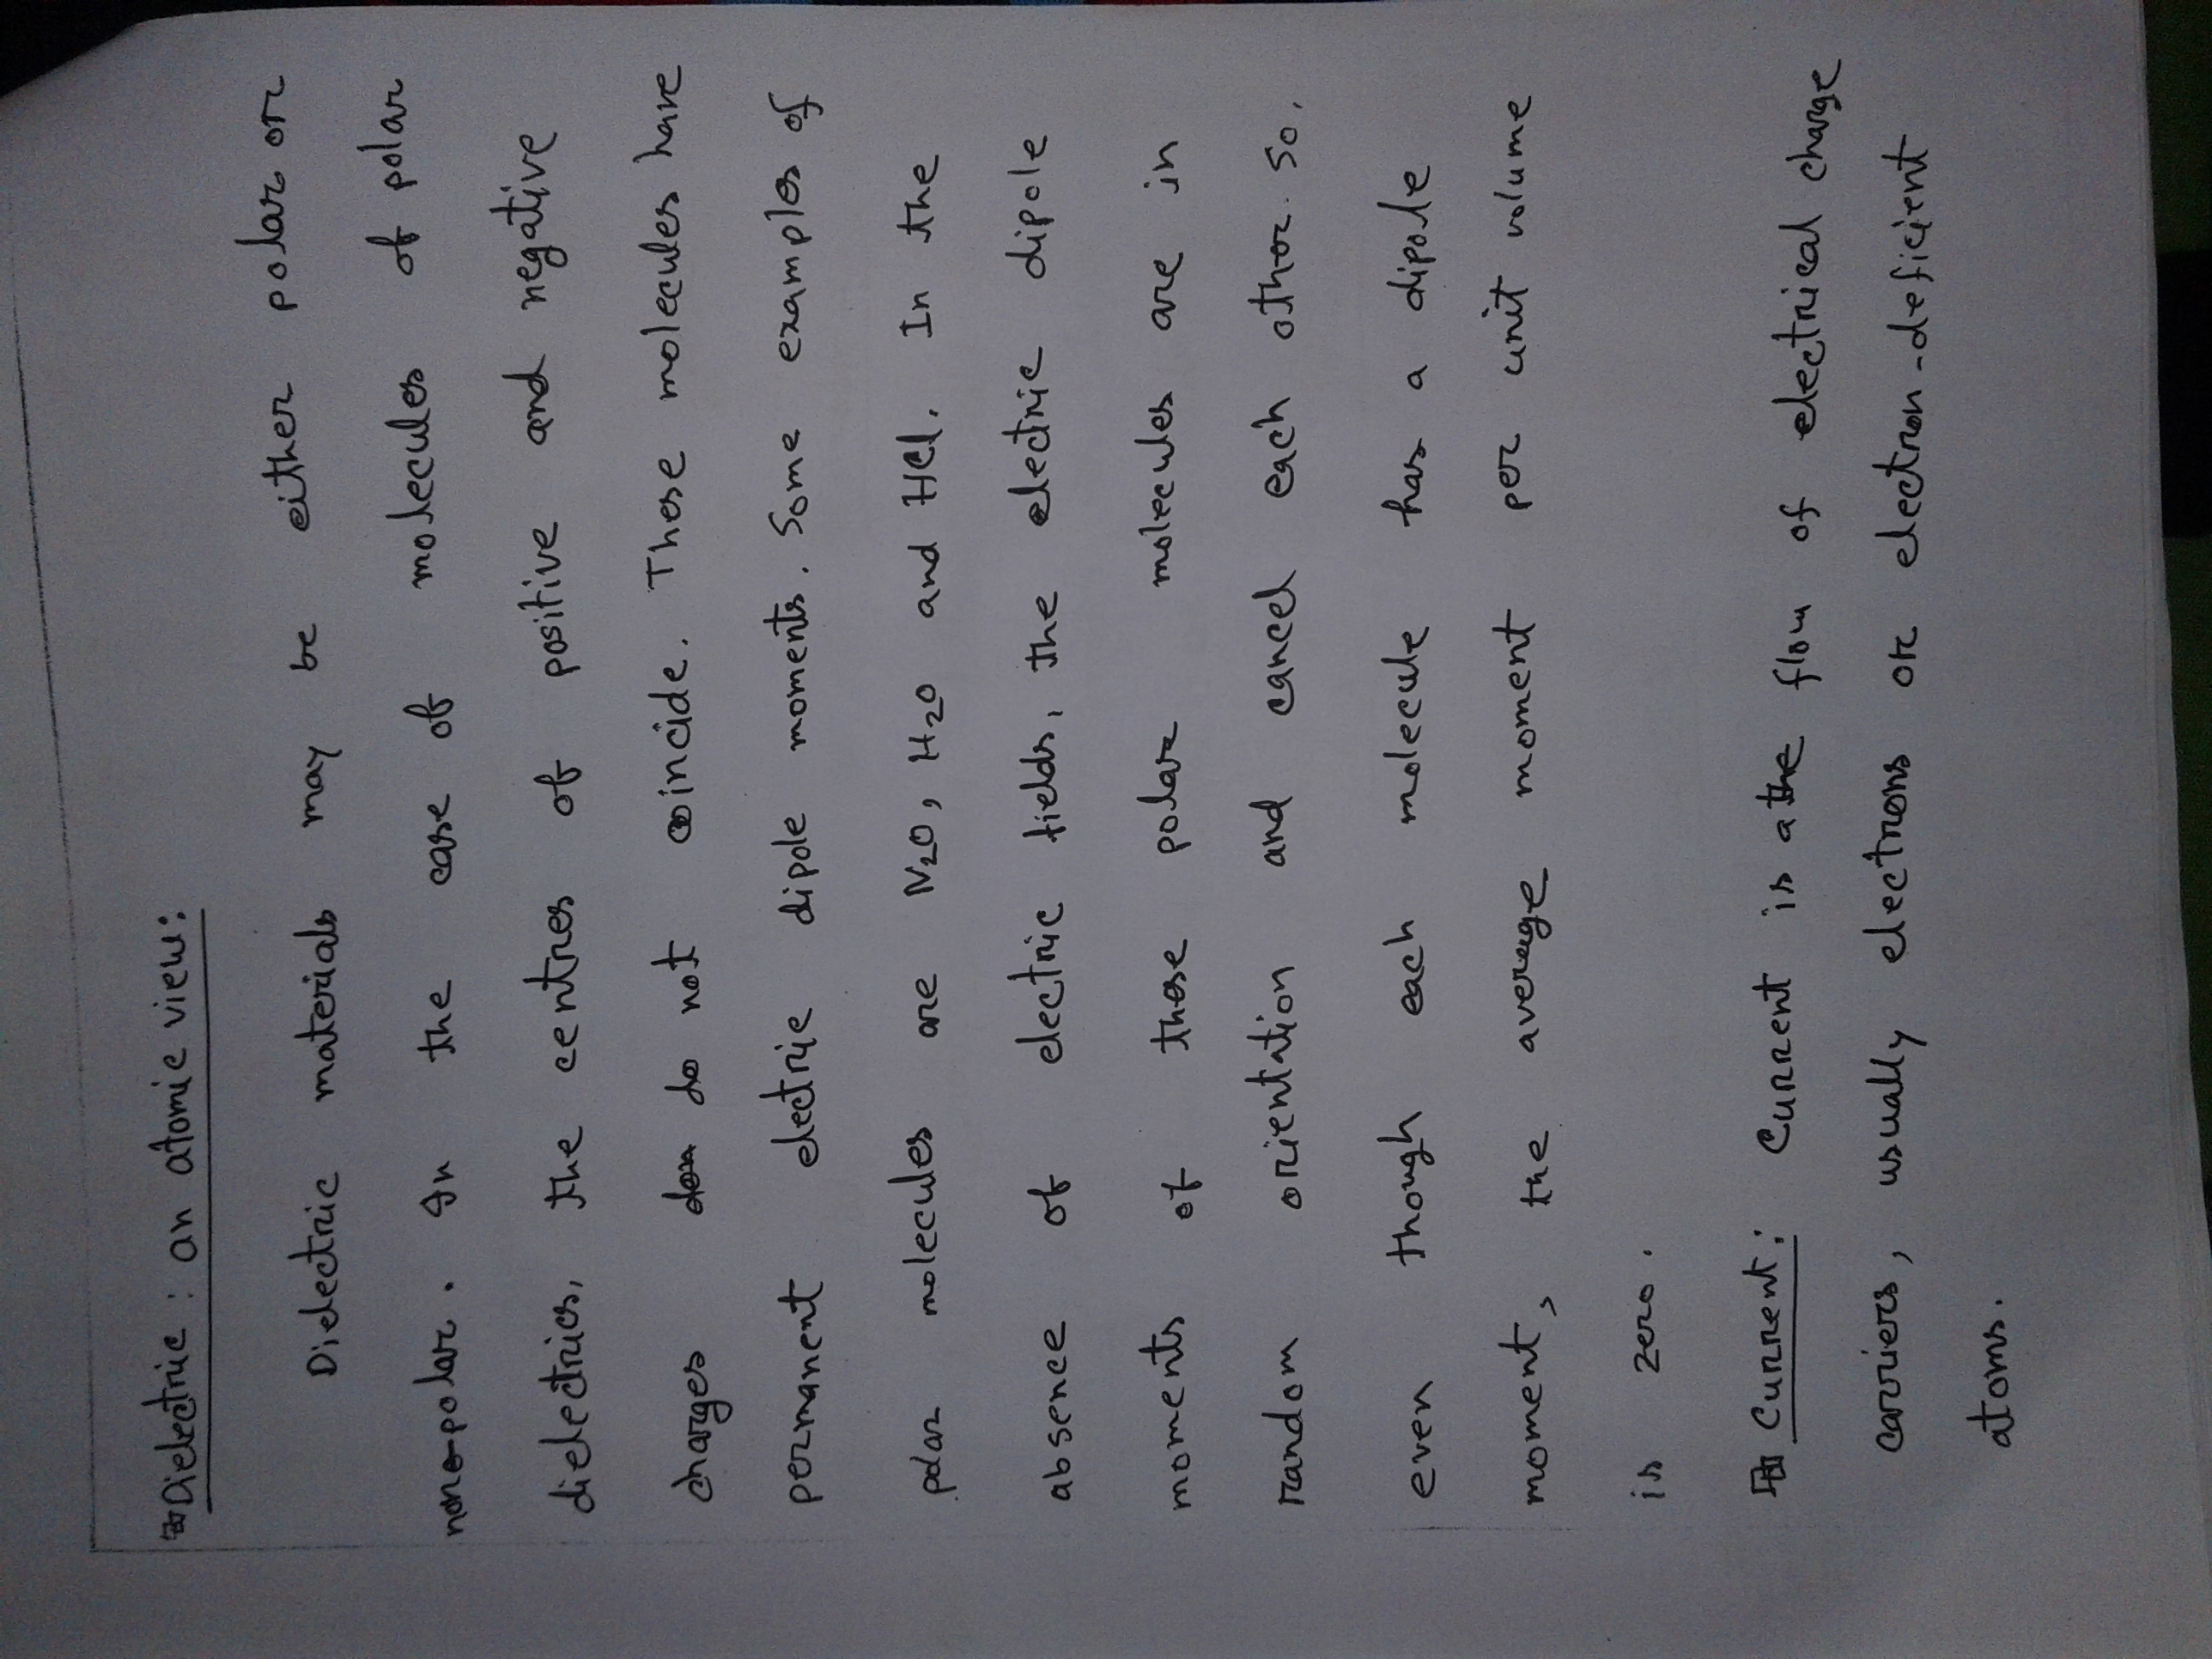 Dielectric : an atomic view:
Dielectric materials may be either polar or
non-polar. In the case of molecules of polar
dielectrics, the centres of positive and negative
charges do not coincide. These molecules have
permanent electric dipole moments. Some examples of
polar molecules are N2O, H2O and HCl. In the
absence of electric fields, the electric dipole
moments of these polar molecules are in
random orientation and cancel each other. So,
even though each molecule has a dipole
moment, the average moment per unit volume
is zero.
Current: Current is a the flow of electrical charge
carriers, usually electrons or electron-deficient
atoms.